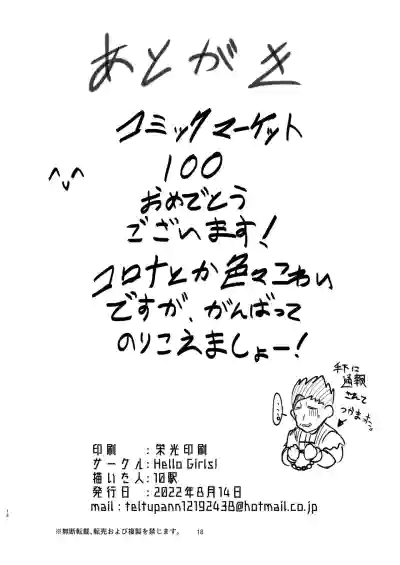 あとがき
コミックマーケット
100
おめでとう
ございます!
コロナとか色々こわい
ですが、がんばって
のりこえましょー!
手下に
通報
されて
つかまった。
印刷　：栄光印刷
サークル：Hello Girls!
描いた人：10駅
発行日　：2022年8月14日
mail：teltupann12192438@hotmail.co.jp
※無断転載、転売および複製を禁じます。
18